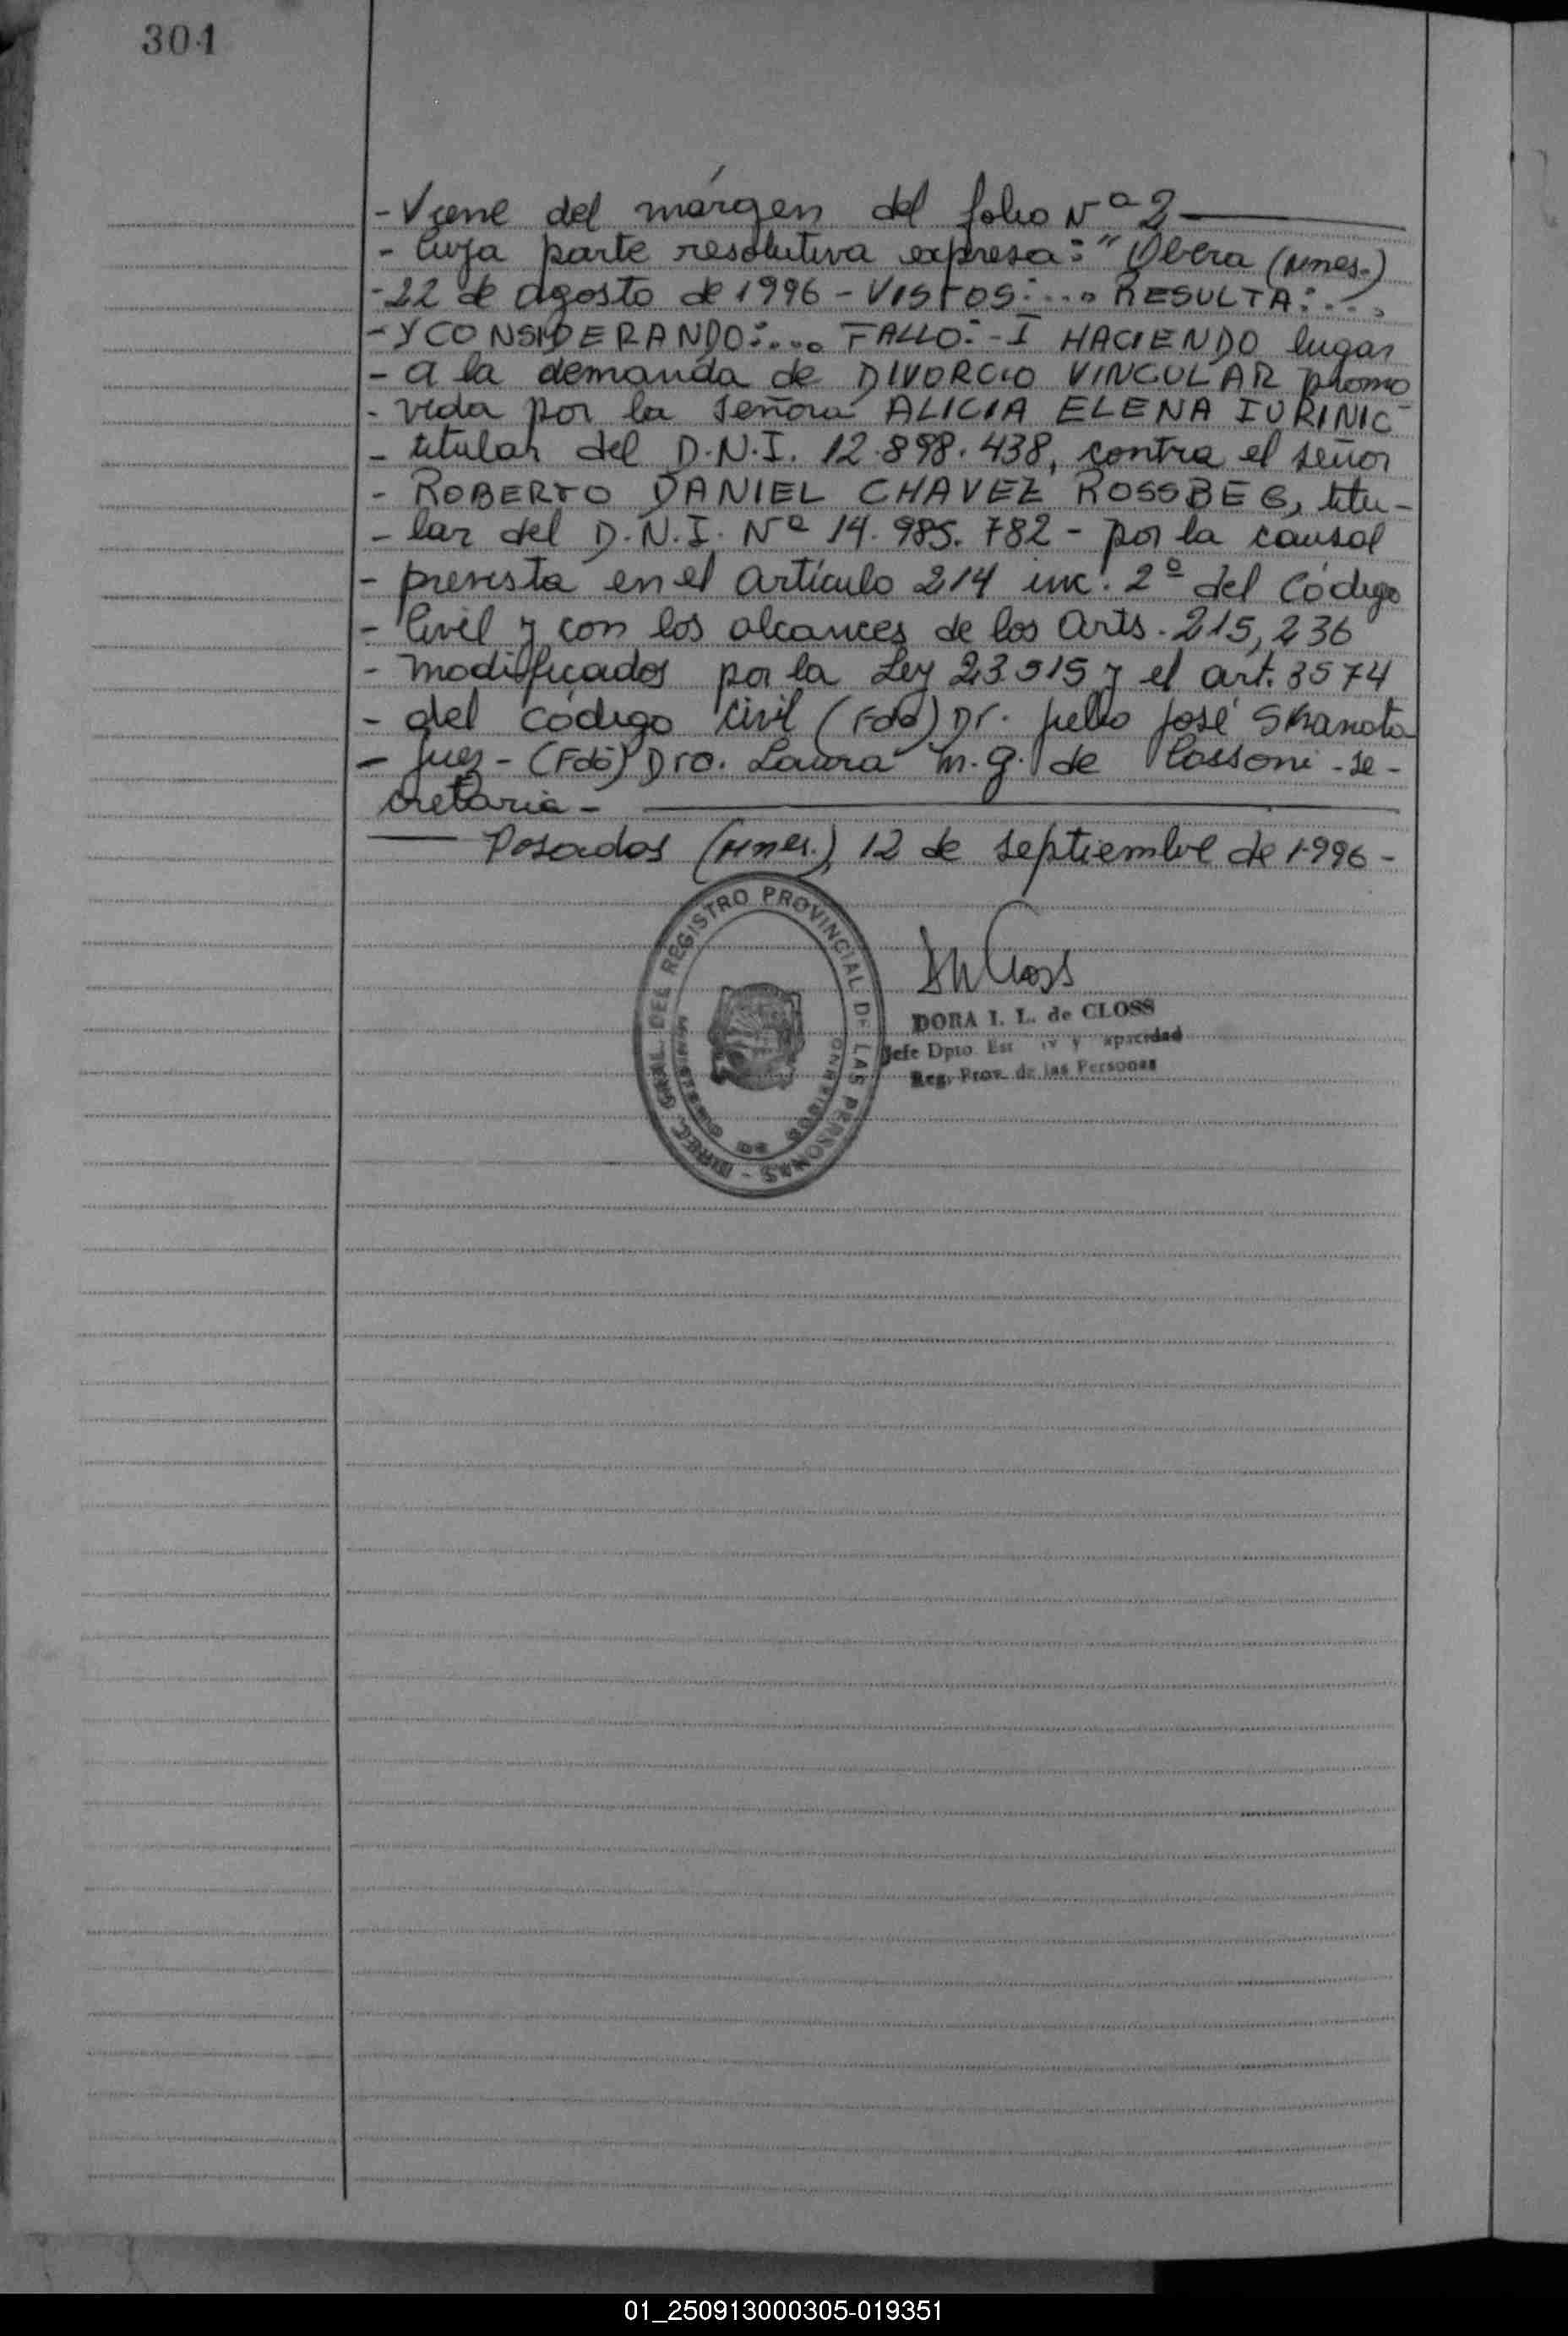 301
- Viene del márgen del folio Nº 2
- Cuya parte resolutiva expresa: "Obera (Mnes.)
- 22 de agosto de 1996 - VISTOS:.... RESULTA:....
- Y CONSIDERANDO:.... FALLO: - I HACIENDO lugar
- a la demanda de DIVORCIO VINCULAR promo
- vida por la señora ALICIA ELENA IURINIC
- titular del D.N.I. 12.898.438, contra el señor
- ROBERTO DANIEL CHAVEZ ROSSBEG, titu-
- lar del D.N.I. Nº 14.985.782 - por la causal
- prevista en el artículo 214 inc. 2º del Código
- Civil y con los alcances de los Arts. 215, 236
- modificados por la Ley 23.515 y el art. 3574
- del Código Civil (Fdo) Dr. Julio José
- Juez - (Fdo) Dra. Laura M. G. de - Se-
cretaria -
Posadas (Mnes.), 12 de septiembre de 1996 -
DIREC. GRAL. DEL REGISTRO PROVINCIAL DE LAS PERSONAS -
DORA I. L. de CLOSS
Jefe Dpto.
Reg. Prov. de las Personas
01_250913000305-019351